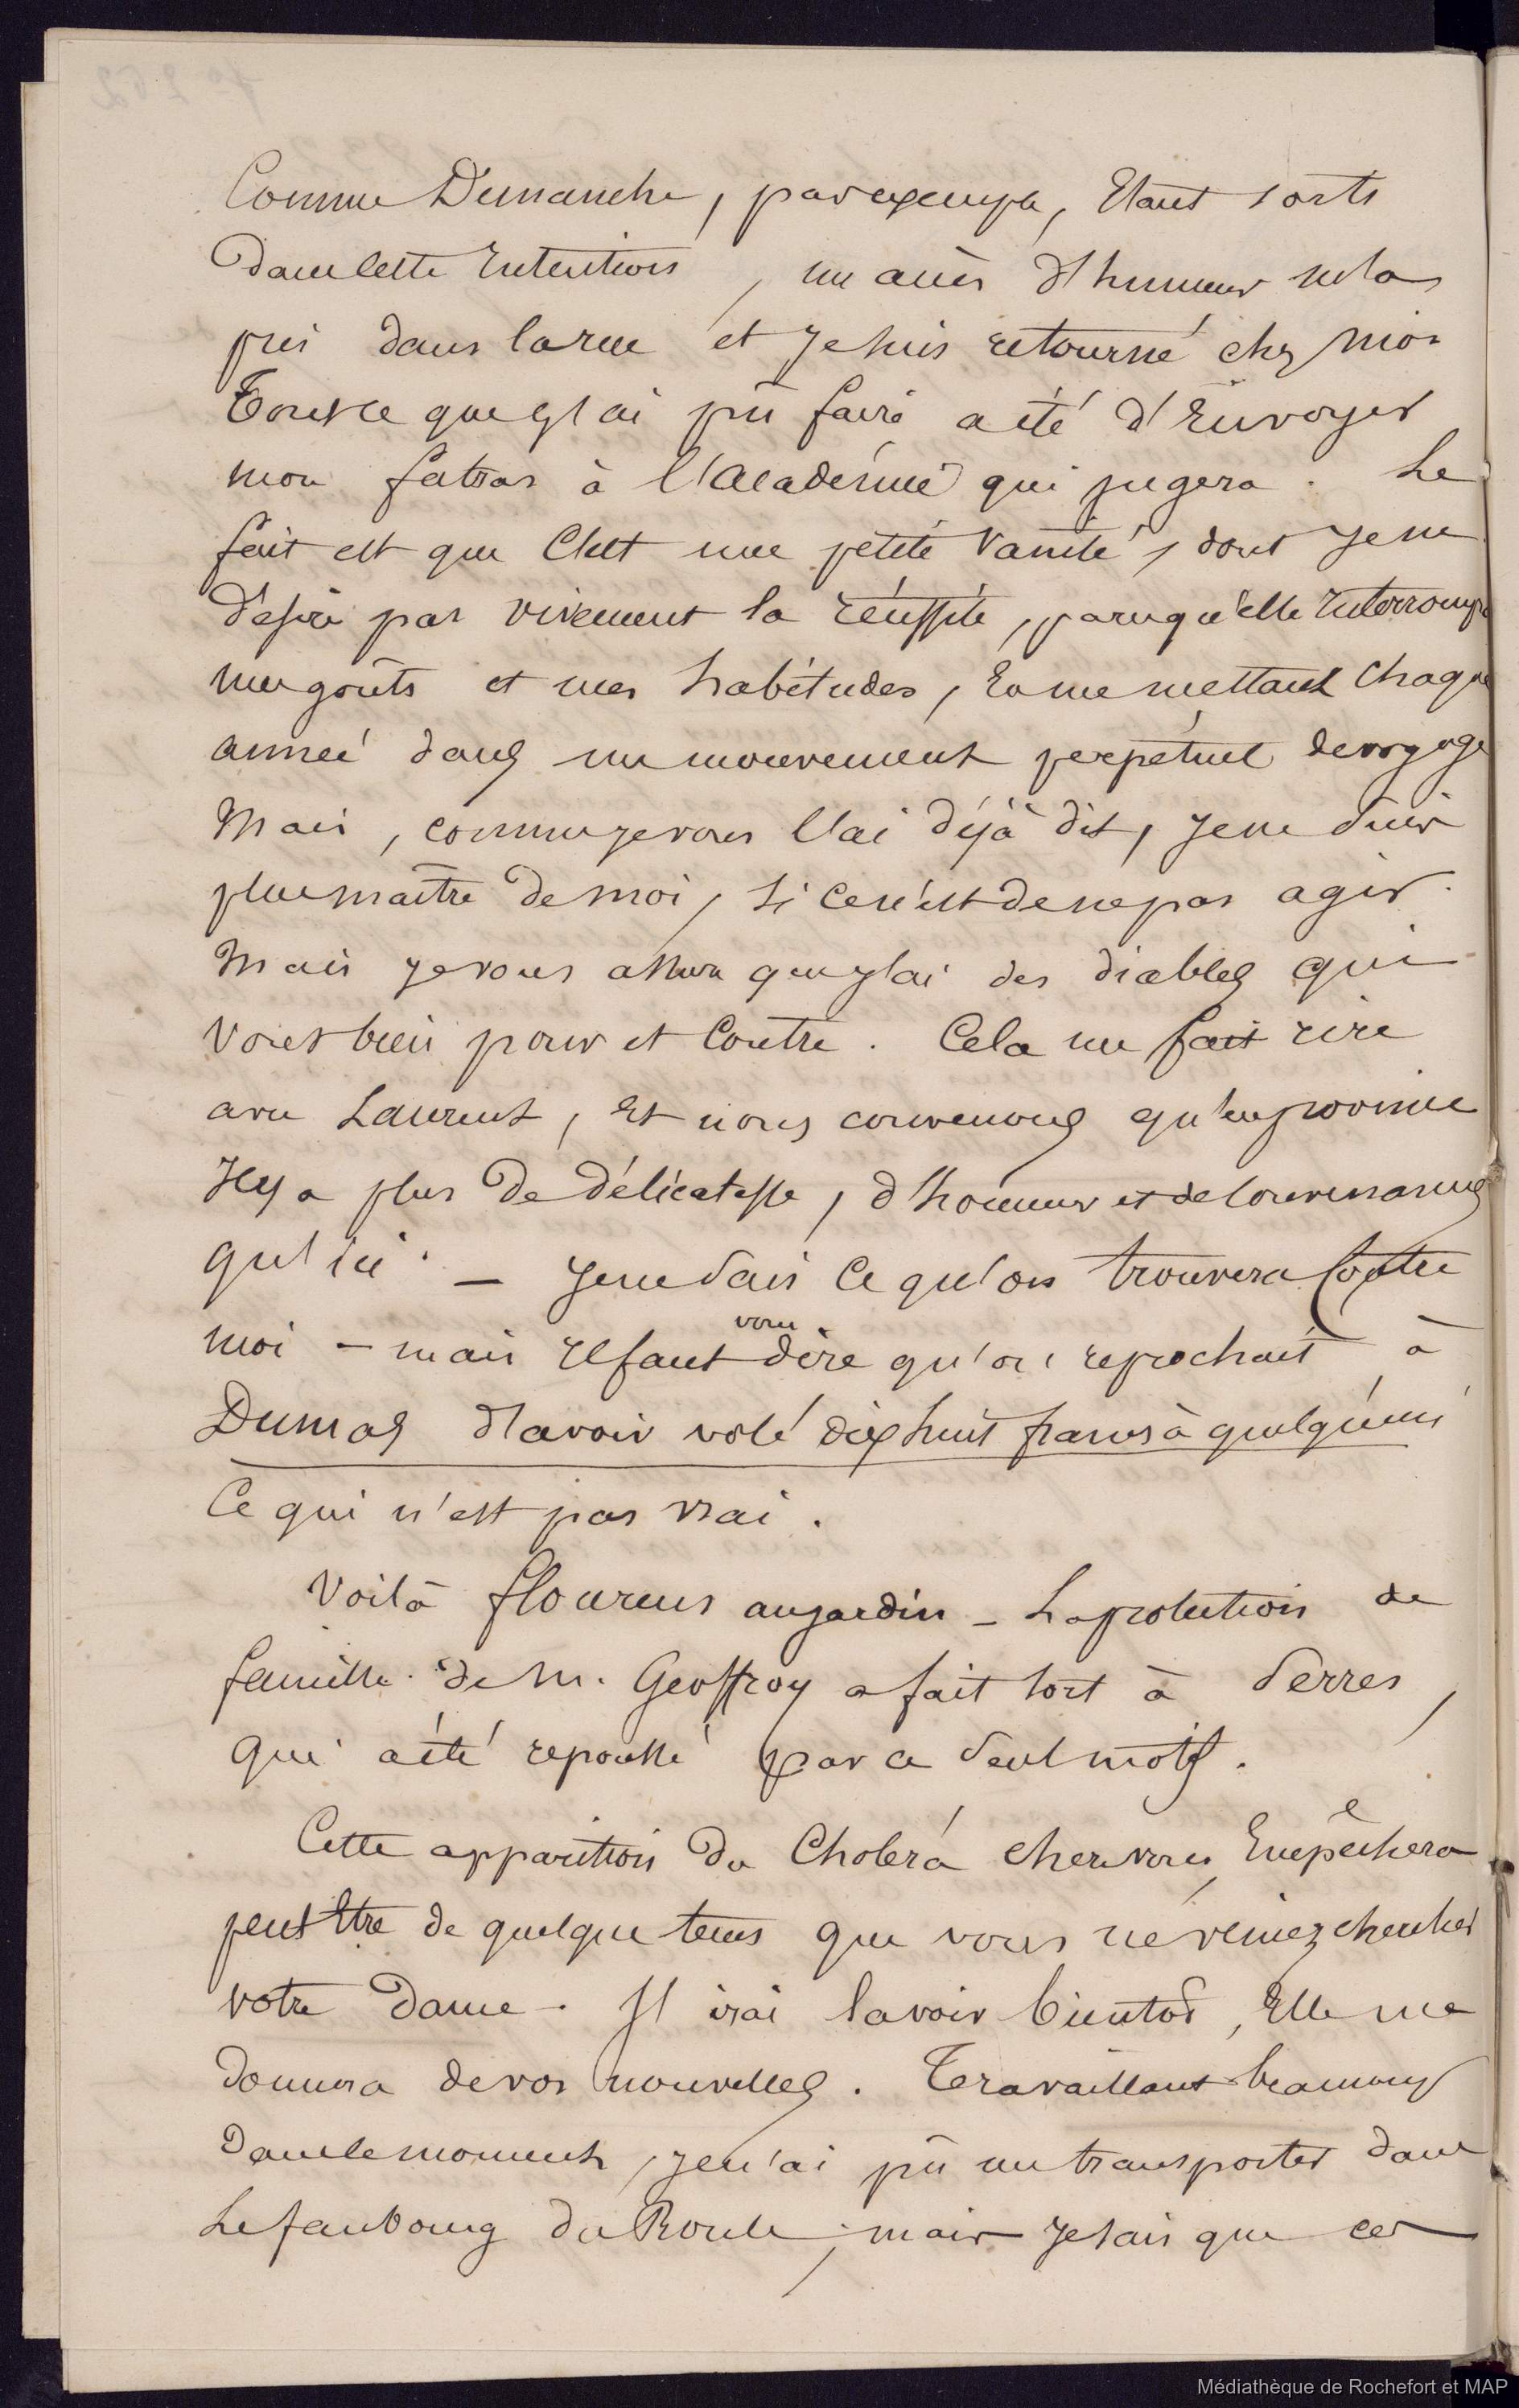 Comme Dimanche, par exemple, Etant sorti
dans cette intention, un accès d'humeur m'a
pris dans la rue et je suis retourné chez moi
Tout ce que j'ai pû faire a été d'Envoyer
mon fatras à l'académie qui jugera. Le
fait est que C'est une petite vanité, dont je ne
désire pas vivement la réussite, parcequ'elle interrompra
mes goûts et mes habitudes, En me mettant chaque
année dans un mouvement perpétuel de voyage
Mais, comme je vous l'ai déjà dit, je ne suis
plus maître de moi, si ce n'est de ne pas agir.
Mais je vous assure que j'ai des diables qui
vont bien pour et Contre. Cela me fait rire
avec Laurent, Et nous convenons qu'en province
Il y a plus de délicatesse, d'honneur et de convenances
qu'ici. — je ne sais ce qu'on trouvera contre
moi — mais il faut vous dire qu'on reprochait à
Dumas d'avoir volé dix huit francs à quelqu'un
Ce qui n'est pas vrai.
Voilà flourens au jardin — La protection de
famille de M. Geoffroy a fait tort à Serres,
qui a été repoussé par ce seul motif.
Cette apparition du Choléra chez vous, Empêchera
peut être de quelque tems que vous ne veniez chercher
votre dame. J'irai la voir bientôt, Elle me
donnera de vos nouvelles. Travaillant beaucoup
dans le moment, je n'ai pû me transporter dans
Le faubourg du Roule; mais je sais que ces
Médiathèque de Rochefort et MAP